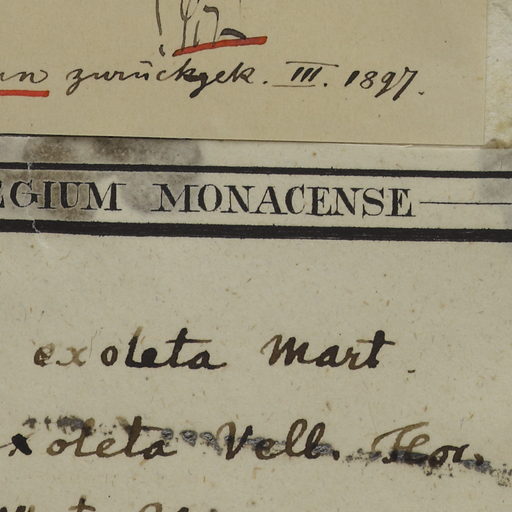 zurückgek. III. 1897.
EGIUM MONACENSE
exoleta Mart.
xoleta Vell. Flor.